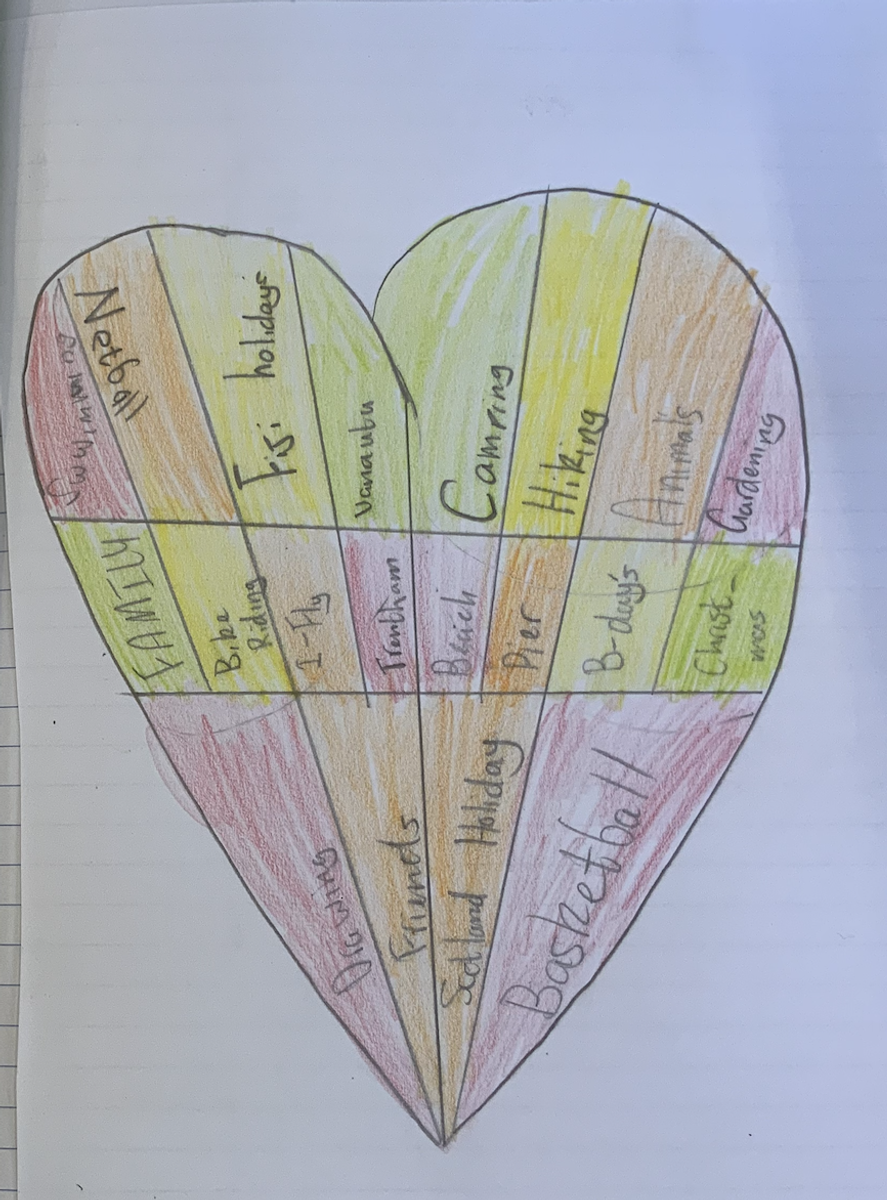 Swimming
Netball
Fiji holidays
Vanauutu
Camping
Hiking
Animals
Gardening
FAMILY
Bike
Riding
I-Fly
Trentham
Beach
Pier
B-day's
Christ-
mas
Drawing
Friends
Scotland Holiday
Basketball